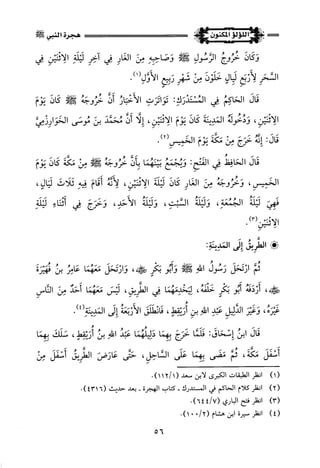 اللؤلؤ المكنون
هجرة النبي ﷺ
وَكَانَ خُرُوجُ الرَّسُولِ ﷺ وَصَاحِبِهِ مِنَ الغَارِ فِي آخِرِ لَيْلَةِ الِاثْنَيْنِ فِي
السَّحَرِ لِأَرْبَعِ لَيَالٍ خَلَوْنَ مِنْ شَهْرِ رَبِيعٍ الأَوَّلِ(١).
قَالَ الحَاكِمُ فِي المُسْتَدْرَكِ: تَوَاتَرَتِ الأَخْبَارُ أَنَّ خُرُوجَهُ ﷺ كَانَ يَوْمَ
الِاثْنَيْنِ، وَدُخُولَهُ المَدِينَةَ كَانَ يَوْمَ الِاثْنَيْنِ، إِلَّا أَنَّ مُحَمَّدَ بنَ مُوسَى الخَوَارِزْمِيَّ
قَالَ: إِنَّهُ خَرَجَ مِنْ مَكَّةَ يَوْمَ الخَمِيسِ(٢).
قَالَ الحَافِظُ فِي الفَتْحِ: وَيُجْمَعُ بَيْنَهُمَا بِأَنَّ خُرُوجَهُ ﷺ مِنْ مَكَّةَ كَانَ يَوْمَ
الخَمِيسِ، وَخُرُوجَهُ مِنَ الغَارِ كَانَ لَيْلَةَ الِاثْنَيْنِ، لِأَنَّهُ أَقَامَ فِيهِ ثَلَاثَ لَيَالٍ،
فَهِيَ لَيْلَةُ الجُمُعَةِ، وَلَيْلَةُ السَّبْتِ، وَلَيْلَةُ الأَحَدِ، وَخَرَجَ فِي أَثْنَاءِ لَيْلَةِ
الِاثْنَيْنِ(٣).
الطَّرِيقُ إِلَى المَدِينَةِ:
ثُمَّ ارْتَحَلَ رَسُولُ اللهِ ﷺ وَأَبُو بَكْرٍ ﵁، وَارْتَحَلَ مَعَهُمَا عَامِرُ بنُ فُهَيْرَةَ
﵁، أَرْدَفَهُ أَبُو بَكْرٍ خَلْفَهُ، لِيَخْدِمَهُمَا فِي الطَّرِيقِ، لَيْسَ مَعَهُمَا أَحَدٌ مِنَ النَّاسِ
غَيْرُهُ، وَغَيْرُ الدَّلِيلِ عَبْدِ اللهِ بنِ أُرَيْقِطٍ، فَانْطَلَقَ الأَرْبَعَةُ إِلَى المَدِينَةِ(٤).
قَالَ ابنُ إِسْحَاقَ: فَلَمَّا خَرَجَ بِهِمَا دَلِيلُهُمَا عَبْدُ اللهِ بنُ أُرَيْقِطٍ، سَلَكَ بِهِمَا
أَسْفَلَ مَكَّةَ، ثُمَّ مَضَى بِهِمَا عَلَى السَّاحِلِ، حَتَّى عَارَضَ الطَّرِيقَ أَسْفَلَ مِنْ
(١) انظر الطبقات الكبرى لابن سعد (١/ ١١٢).
(٢) انظر كلام الحاكم في المستدرك - كتاب الهجرة - بعد حديث (٤٣١٦).
(٣) انظر فتح الباري (٧/ ٦٤٤).
(٤) انظر سيرة ابن هشام (٢/ ١٠٠).
٥٦